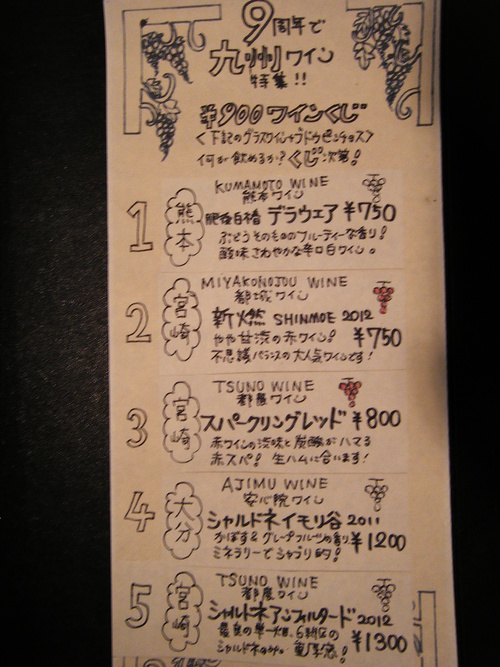 9周年で
九州ワイン
特集!!
¥900ワインくじ
<下記のグラスワイン+ブドウピンチョス>
何が飲めるか?くじ次第!
KUMAMOTO WINE
熊本ワイン
1 熊本 肥後白書 デラウェア ¥750
ぶどうそのもののフルーティーな香り!
酸味さわやかな辛口白ワイン。
MIYAKONOJOU WINE
都城ワイン
2 宮崎 新燃 SHINMOE 2012
やや甘渋の赤ワイン! ¥750
不思議バランスの大人気ワインです!
TSUNO WINE
都農ワイン
3 宮崎 スパークリングレッド ¥800
赤ワインの渋味と炭酸がハマる
赤スパ! 生ハムに合います!
AJIMU WINE
安心院ワイン
4 大分 シャルドネイモリ谷 2011
かぼす&グレープフルーツの香り ¥1200
ミネラリーでシャブリ的!
TSUNO WINE
都農ワイン
5 宮崎 シャルドネアンフィルタード 2012
最良の単一畑、6耕区の ¥1300
シャルドネのみ。